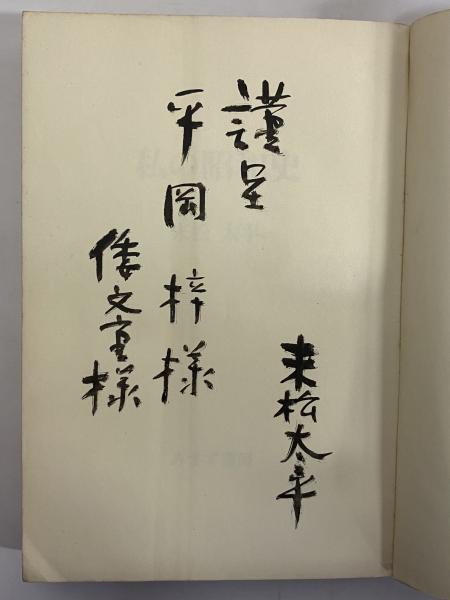 謹呈
平岡 梓様
倭文重様
末松太平